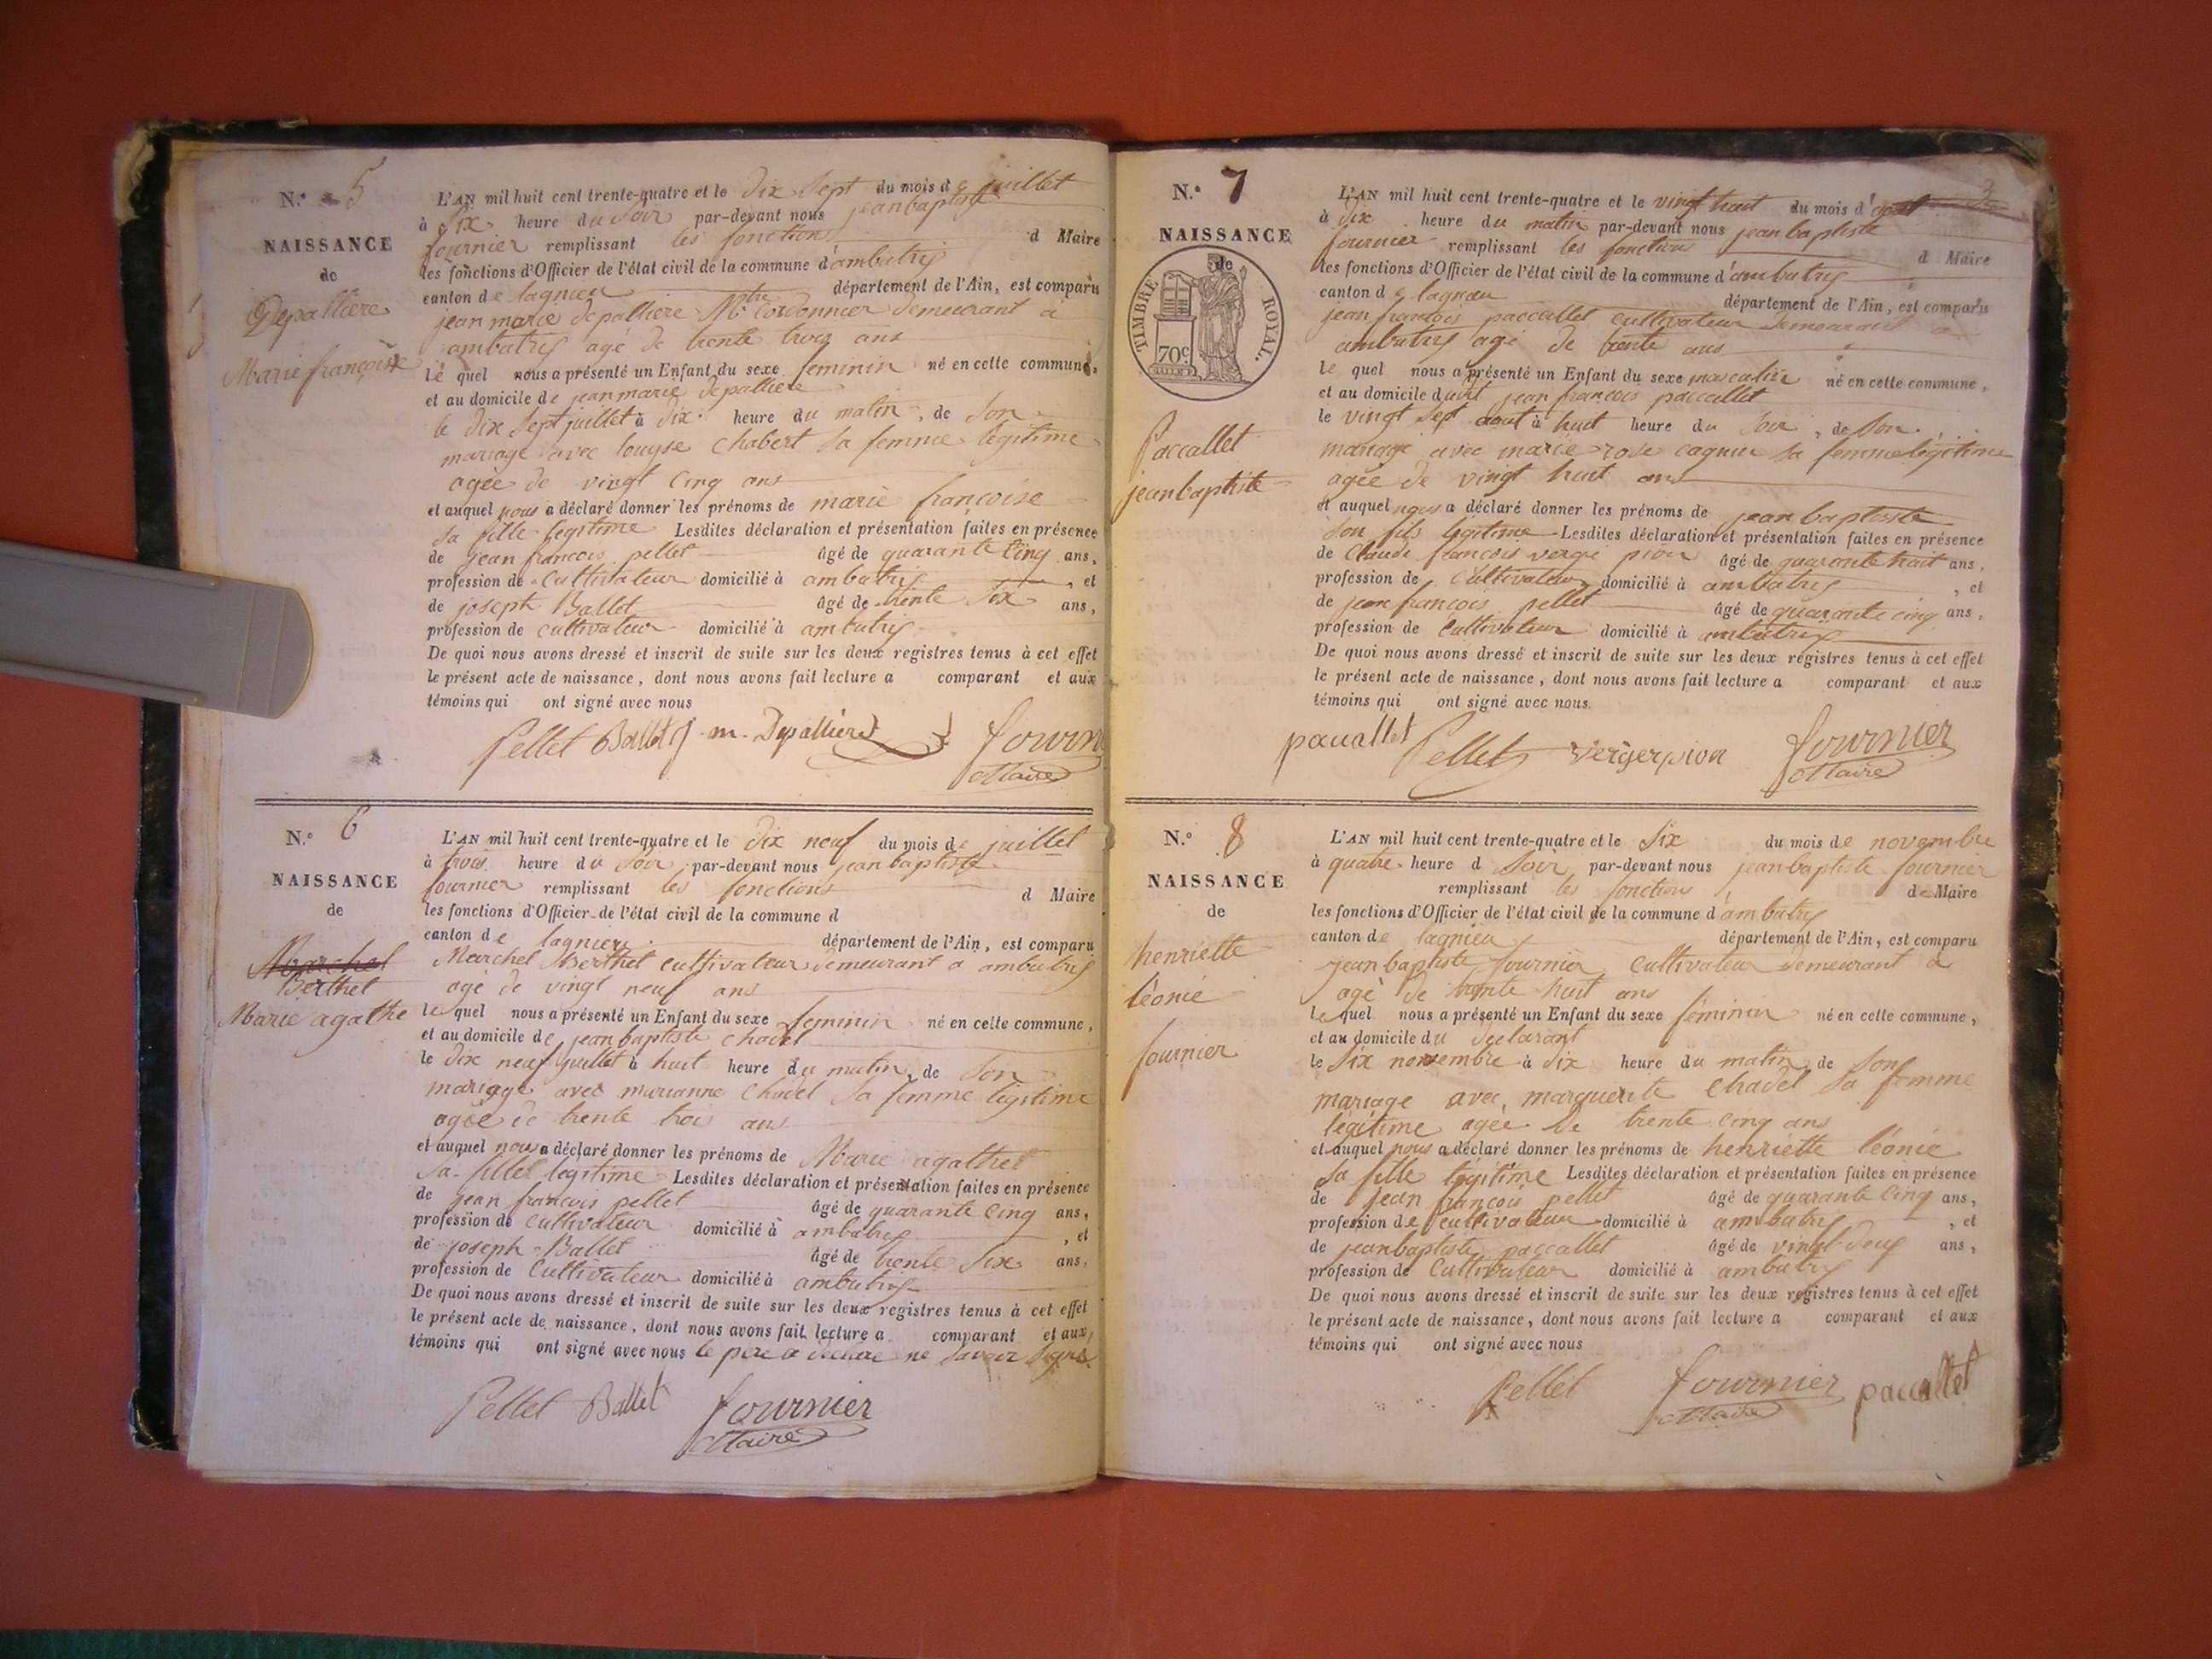 N.° 5
NAISSANCE
de
Depallière
Marie françoise
L'AN mil huit cent trente-quatre et le dix sept du mois de juillet
à six heure du soir par-devant nous jean baptiste
fournier remplissant les fonctions d Maire
les fonctions d'Officier de l'état civil de la commune d'ambutrix
canton de lagnieu département de l'Ain, est comparu
jean marie depalliere Mtre Cordonnier demeurant à
ambutrix agé de trente trois ans
Le quel nous a présenté un Enfant du sexe feminin né en cette commune,
et au domicile de jean marie depalliere
le dix sept juillet à dix heure du matin, de son
mariage avec louyse Chabert sa femme legitime
agée de vingt cinq ans
et auquel nous a déclaré donner les prénoms de marie françoise
sa fille legitime Lesdites déclaration et présentation faites en présence
de jean françois pellet âgé de quarante cinq ans,
profession de Cultivateur domicilié à ambutrix, et
de joseph Ballet âgé de trente six ans,
profession de cultivateur domicilié à ambutrix
De quoi nous avons dressé et inscrit de suite sur les deux registres tenus à cet effet
le présent acte de naissance, dont nous avons fait lecture a comparant et aux
témoins qui ont signé avec nous
Pellet Ballet j. m. Depallière fourn
Maire
N.° 6
NAISSANCE
de
Marchel
Berthet
Marie agathe
L'AN mil huit cent trente-quatre et le dix neuf du mois de juillet
à trois heure du soir par-devant nous jean baptiste
fournier remplissant les fonctions d Maire
les fonctions d'Officier de l'état civil de la commune d
canton de lagnieu département de l'Ain, est comparu
Marchel Berthet cultivateur demeurant a ambutrix
agé de vingt neuf ans
le quel nous a présenté un Enfant du sexe feminin né en cette commune,
et au domicile de jean baptiste chadel
le dix neuf juillet à huit heure du matin, de son
mariage avec marianne Chadel sa femme legitime
agée de trente troi ans
et auquel nous a déclaré donner les prénoms de Marie agathe
sa fille legitime Lesdites déclaration et présentation faites en présence
de jean françois pellet âgé de quarante cinq ans,
profession de Cultivateur domicilié à ambutrix, et
de joseph Ballet âgé de trente six ans,
profession de Cultivateur domicilié à ambutrix
De quoi nous avons dressé et inscrit de suite sur les deux registres tenus à cet effet
le présent acte de naissance, dont nous avons fait lecture a comparant et aux
témoins qui ont signé avec nous le pere a déclaré ne savoir signé
Pellet Ballet fournier
Maire
3
N.° 7
NAISSANCE
de
TIMBRE ROYAL.
70c
Paccallet
jean baptiste
L'AN mil huit cent trente-quatre et le vingt huit du mois d'aout
à dix heure du matin par-devant nous jean baptiste
fournier remplissant les fonctions d Maire
les fonctions d'Officier de l'état civil de la commune d'ambutrix
canton de lagnieu département de l'Ain, est comparu
jean françois paccallet cultivateur demeurant a
ambutrix agé de trente ans
Le quel nous a présenté un Enfant du sexe masculin né en cette commune,
et au domicile dudit jean françois paccallet
le vingt sept aout à huit heure du soir, de son
mariage avec marie rose cagnin sa femme légitime
agée de vingt huit ans
et auquel nous a déclaré donner les prénoms de jean baptiste
son fils légitime Lesdites déclaration et présentation faites en présence
de Claude françois verge pion âgé de quarante huit ans,
profession de Cultivateur domicilié à ambutrix, et
de jean françois pellet âgé de quarante cinq ans,
profession de Cultivateur domicilié à ambutrix
De quoi nous avons dressé et inscrit de suite sur les deux registres tenus à cet effet
le présent acte de naissance, dont nous avons fait lecture a comparant et aux
témoins qui ont signé avec nous.
pacallet Pellet vergerpion fournier
Maire
N.° 8
NAISSANCE
de
henriette
léonie
fournier
L'AN mil huit cent trente-quatre et le six du mois de novembre
à quatre heure d soir par-devant nous jean baptiste fournier
remplissant les fonctions de Maire
les fonctions d'Officier de l'état civil de la commune d'ambutrix
canton de lagnieu département de l'Ain, est comparu
jean baptiste fournier Cultivateur demeurant à
agé de trente huit ans
Le quel nous a présenté un Enfant du sexe féminin né en cette commune,
et au domicile du déclarant
le six novembre à dix heure du matin, de son
mariage avec marguerite Chadel sa femme
légitime agée de trente cinq ans
et auquel nous a déclaré donner les prénoms de henriette léonie
sa fille légitime Lesdites déclaration et présentation faites en présence
de jean françois pellet âgé de quarante cinq ans,
profession de cultivateur domicilié à ambutrix, et
de jean baptiste paccallet âgé de vingt deux ans,
profession de Cultivateur domicilié à ambutrix
De quoi nous avons dressé et inscrit de suite sur les deux registres tenus à cet effet
le présent acte de naissance, dont nous avons fait lecture a comparant et aux
témoins qui ont signé avec nous
Pellet fournier paccallet
Maire